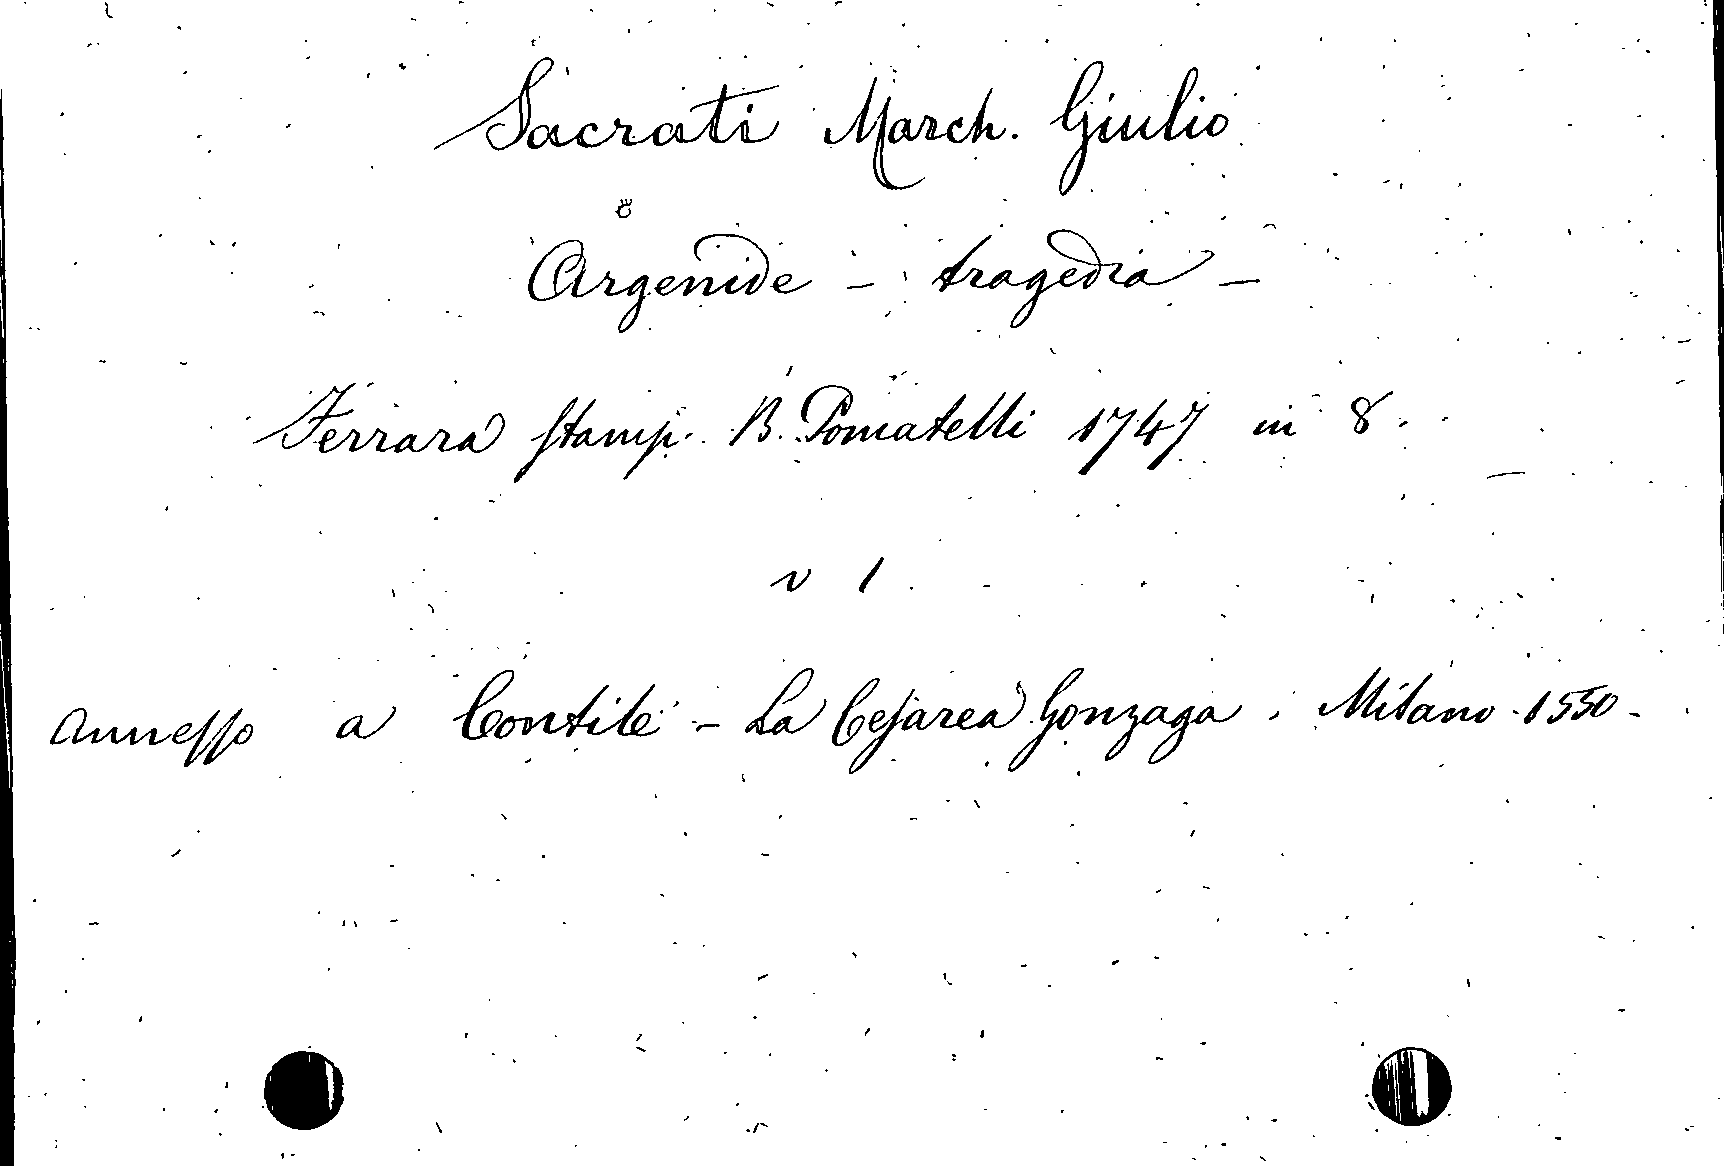 Sacrati March. Giulio
Argenide - tragedia -
Ferrara stamp. B. Pomatelli 1747 in 8.
v 1
annesso a Contile - La Cesarea Gonzaga. Milano 1550 -